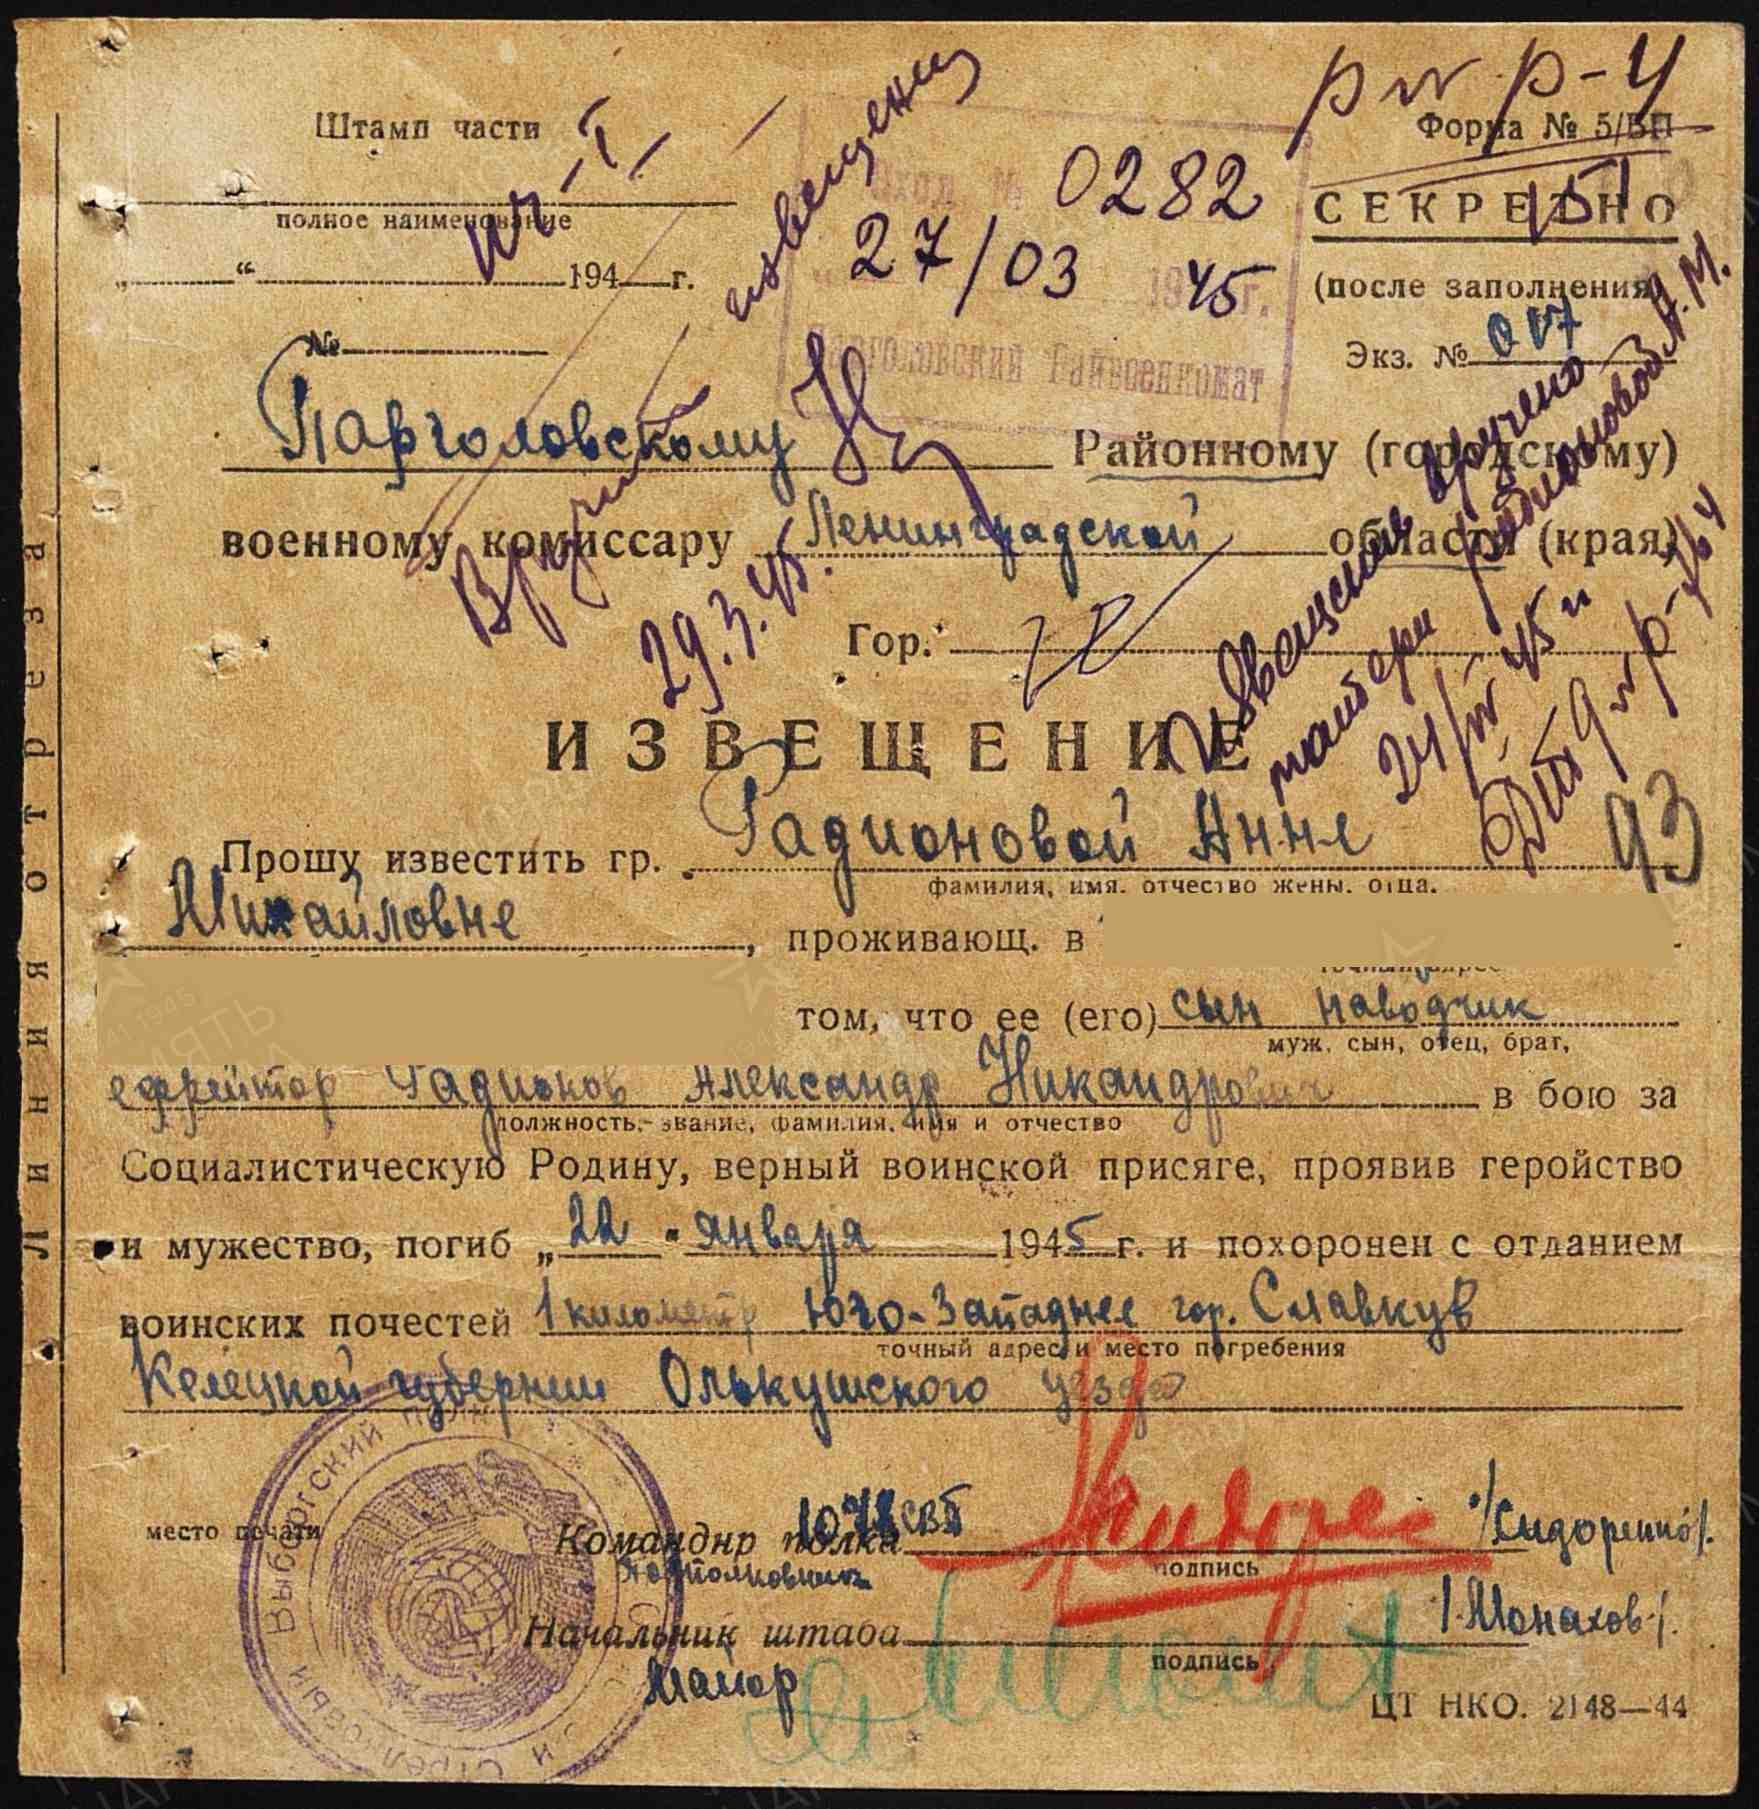 Штамп части
полное наименование
„ “ 194 г.
№
извещение
Вручить
29.3.45.
Вход № 0282
27/03 1945 г.
Парголовский Райвоенкомат
Форма № 5/БП
СЕКРЕТНО
(после заполнения)
Экз. №
Парголовскому Районному (городскому)
военному комиссару Ленинградской области (края)
Гор.
Извещение вручено
матери Радионовой А.М.
45 г
ИЗВЕЩЕНИЕ
93
Прошу известить гр. Радионовой Анне
фамилия, имя. отчество жены. отца.
Михайловне, проживающ. в
точный адрес
том, что ее (его) сын наводчик
муж. сын, отец, брат,
ефрейтор Радионов Александр Никандрович в бою за
должность,- звание, фамилия, имя и отчество
Социалистическую Родину, верный воинской присяге, проявив геройство
и мужество, погиб „22 " января 1945 г. и похоронен с отданием
воинских почестей 1 километр Юго-Западнее гор. Славкув
точный адрес и место погребения
Келецкой губернии Олькушского уезда
место печати
Выборгский
Стрелковый
Командир полка 1078 /Сидоренко/.
подпись
Подполковник
Начальник штаба /.Монахов./.
подпись
Майор
ЦТ НКО. 2148—44
Линия отреза